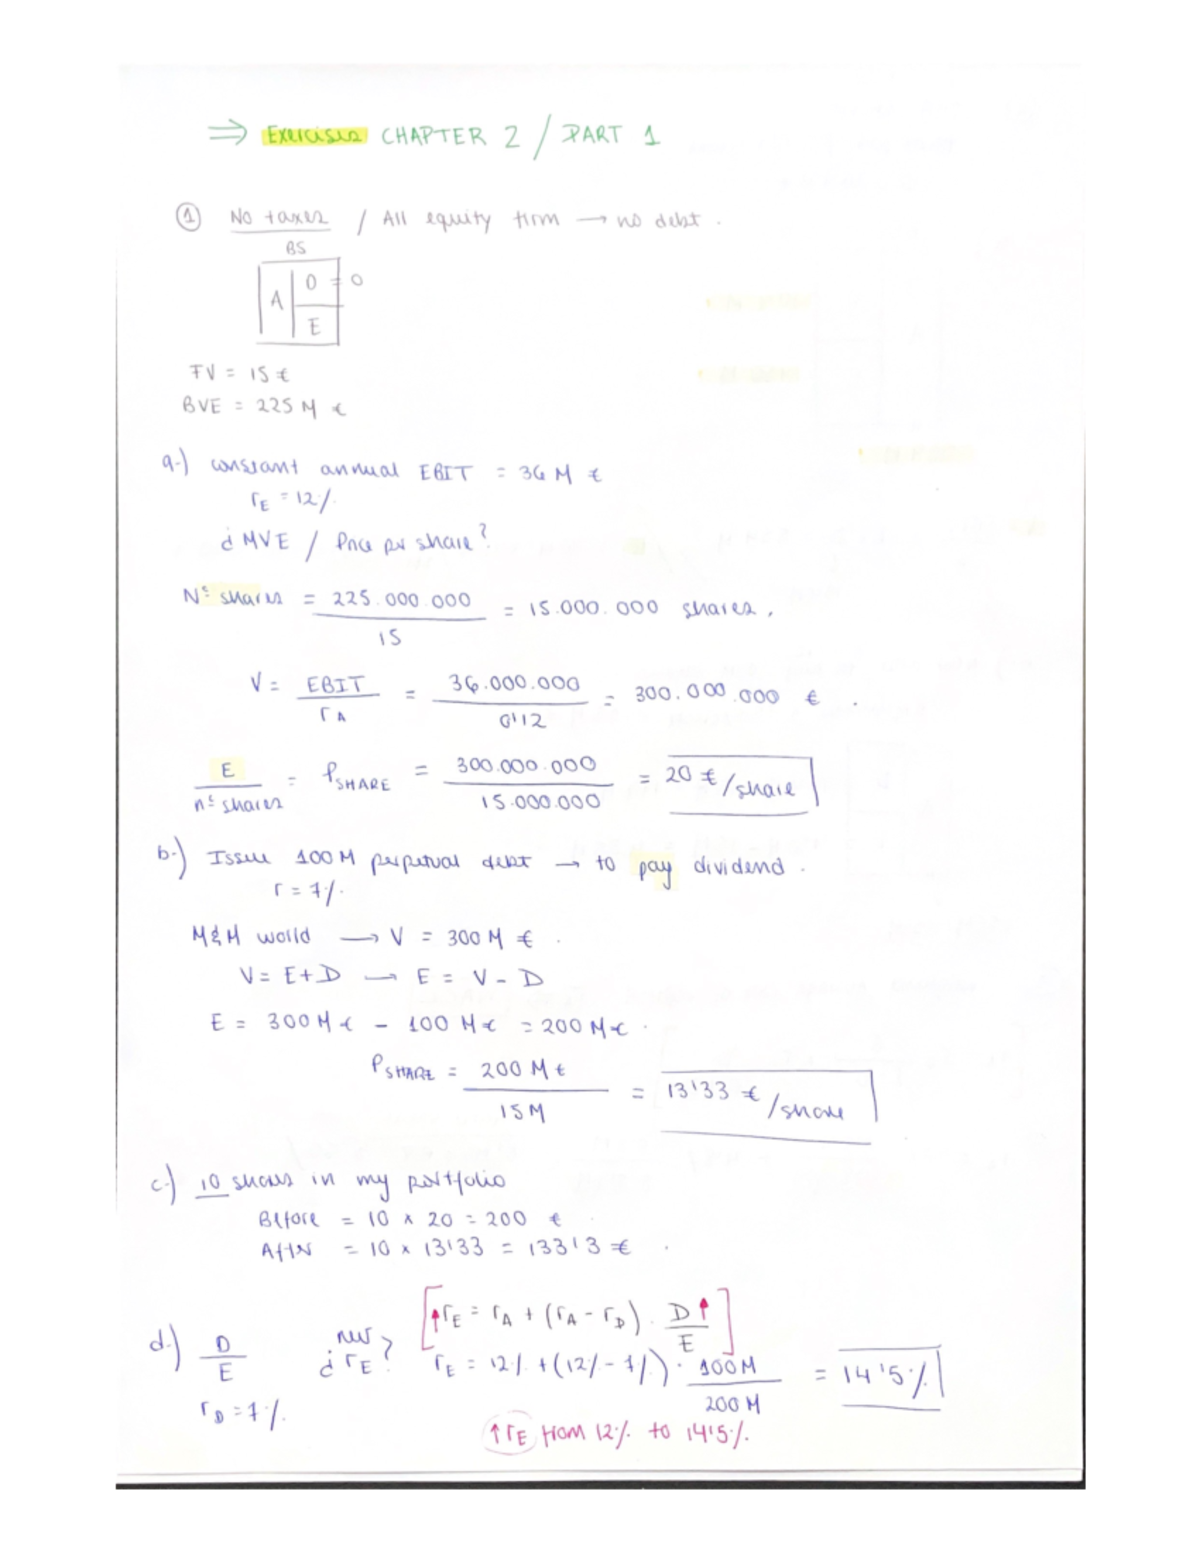 ⇒ Exercises CHAPTER 2 / PART 1
① No taxes / All equity firm → no debt.
BS
A D = 0
E
FV = 15 €
BVE = 225 M €
a.) constant annual EBIT = 36 M €
rE = 12%.
¿ MVE / Price per share?
Nº shares = 225.000.000 / 15 = 15.000.000 shares.
V = EBIT / rA = 36.000.000 / 0'12 = 300.000.000 €.
E / nº shares = PSHARE = 300.000.000 / 15.000.000 = 20 €/share
b.) Issue 100M perpetual debt → to pay dividend.
r = 7%.
M&M world → V = 300 M €.
V = E + D → E = V - D
E = 300 M € - 100 M € = 200 M €.
PSHARE = 200 M € / 15 M = 13'33 €/share
c.) 10 shares in my portfolio
Before = 10 x 20 = 200 €.
After = 10 x 13'33 = 133'3 €.
d.) D/E new ¿ rE? [↑rE = rA + (rA - rD) · D↑/E]
rE = 12% + (12% - 7%) · 100M / 200M = 14'5%
rD = 7%.
↑rE from 12% to 14'5%.